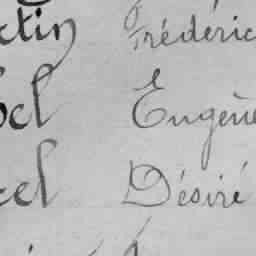 ctin Frédéric
bel Eugène
cel Désiré